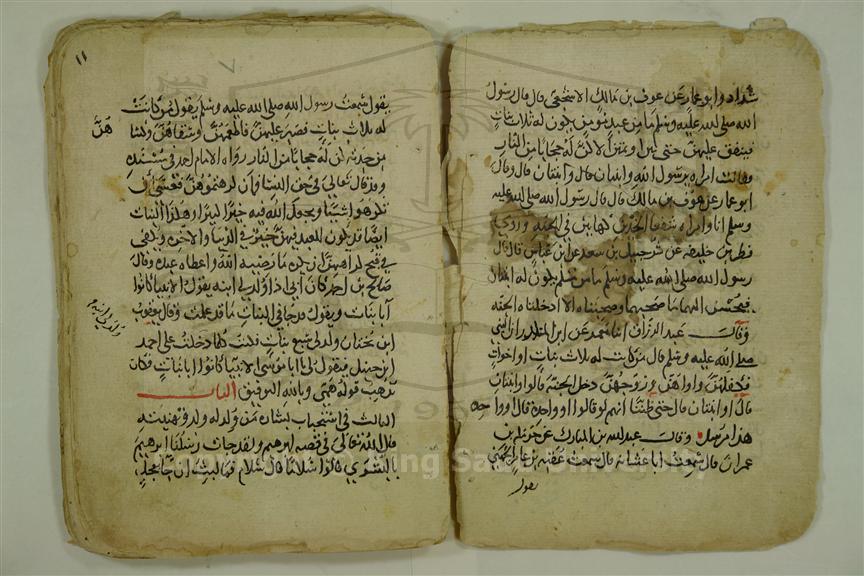 شداد وابو عمار عن عوف بن مالك الاشجعي قال قال رسول
الله صلى الله عليه وسلم ما من عبد مومن يكون له ثلاث بنات
فينفق عليهن حتى يبن او يمتن الا كن له حجابا من النار
وقالت امراه يرسول الله وابنتان قال وابنتان قال وقال
ابو عمار عن عوف بن مالك قال قال رسول الله صلى الله عليه
وسلم انا وامراه سفعا الخدين كهاتين في الجنه وروي
فطر بن خليفه عن شرحبيل بن سعد عن ابن عباس قال قال
رسول الله صلى الله عليه وسلم ما من مسلم يكون له ابنتان
فيحسن اليهما ما صحبهما وصحبتاه الا ادخلتاه الجنه
وقال عبد الرزاق انا معمد عن ابن المنكدر ان النبي
صلى الله عليه وسلم قال من كانت له ثلاث بنات او اخوات
فكفلهن واواهن وزوجهن دخل الجنه قالوا او ابنتان
قال او ابنتان قال حتى ظننا انهم لو قالوا او واحدة قال او واحده
هذا مرسل وقال عبد الله بن المبارك عن حرمله بن
عمران قال سمعت ابا عشانه قال سمعت عقبه بن عامر الجهني
يقول
١١
يقول سمعت رسول الله صلى الله عليه وسلم يقول من كانت
له ثلاث بنات فصبر عليهن فاطعمهن وسقاهن وكسا
هن
من جدته كن له حجابا من النار رواه الامام احمد في مسنده
وقد قال تعالى في حق النسا فان كرهتموهن فعسى ان
تكرهوا شيئا ويجعل الله فيه خيرا كثيرا وهكذا البنات
ايضا قد يكون للعبد فيهن خير في الدنيا والاخره ويكفي
في قبح كراهتهن ان يكره ما رضيه الله واعطاه عبده وقال
صالح بن احمد كان ابي اذا ولد له ابنه يقول الانبيا كانوا
ابا بنات ويقول قد جا في البنات ما قد علمت وقال يعقوب
ابن بختان ولد لي سبع بنات فكنت كلما دخلت على احمد
ابن حنبل فيقول لي يا ابا يوسف الانبيا كانوا ابا بنات فكان
يذهب قوله همي وبالله التوفيق الباب
الثالث في استحباب بشاره من ولد له ولد وتهنيته
قال الله تعالى في قصه ابرهيم ولقد جات رسلنا ابرهيم
بالبشرى قالوا سلاما قال سلام فما لبث ان جا بعجل